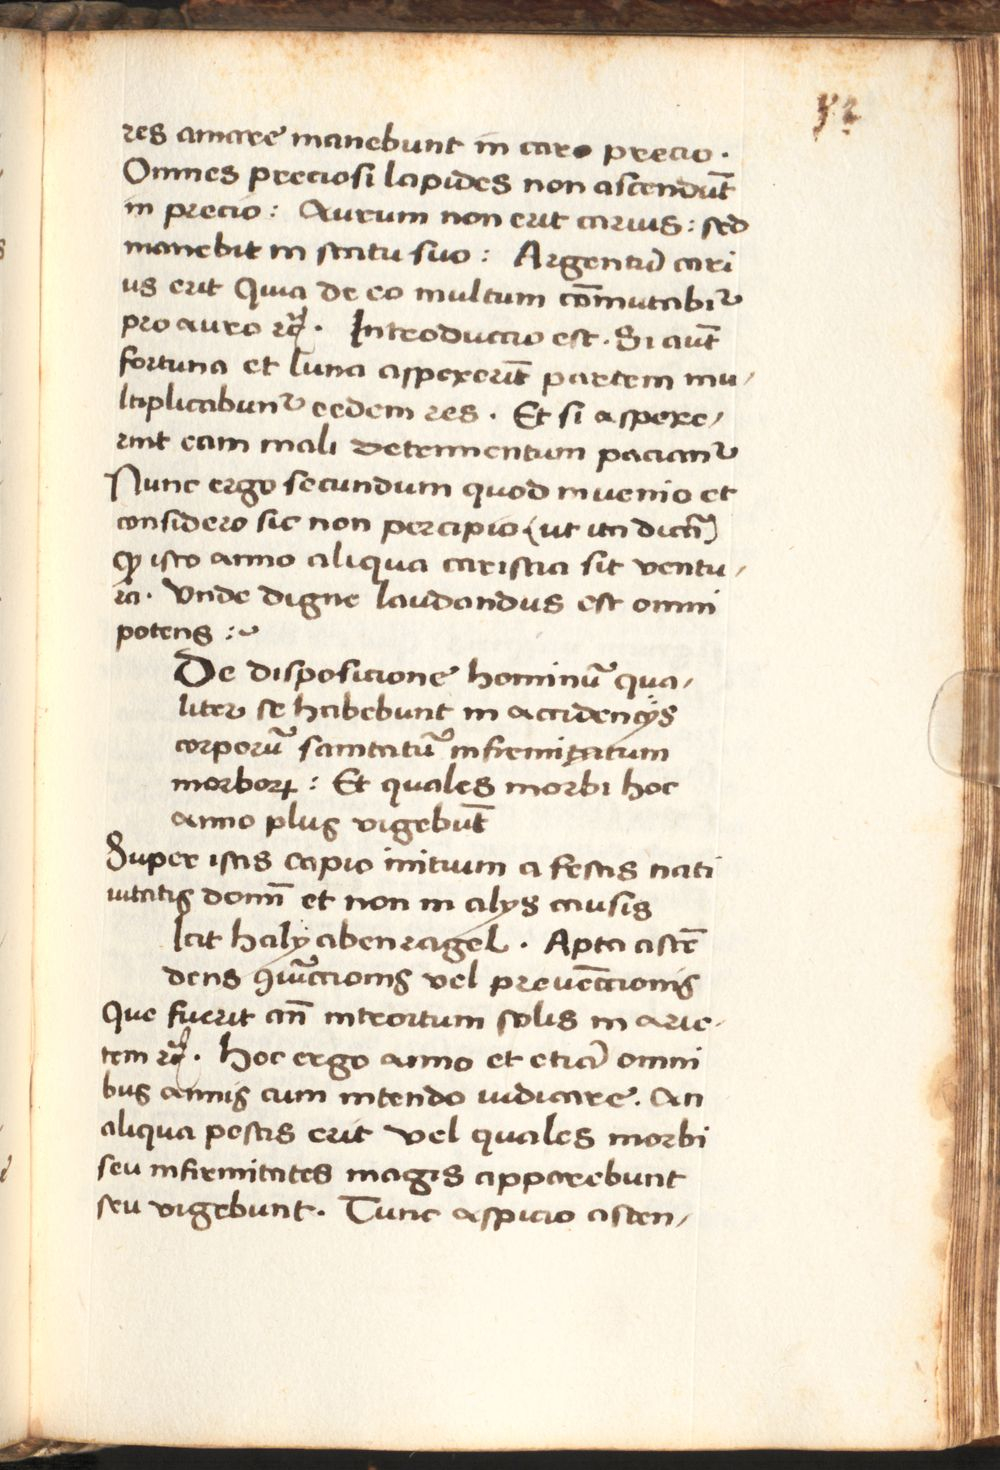 res amare manebunt in caro precio.
Omnes preciosi lapides non ascendūt
in precio: Aurum non erit carius: sed
manebit in statu suo: Argentū cari
us erit Quia de eo multum cōmutabiꝛ
pro auro rc̄. Introduccio est. Si aut̄
fortuna et luna aspexerīt partem mu-
ltiplicabunꝛ eedem res. Et si aspexe-
rint eam mali detrimentum pacianꝛ
Nunc ergo secundum quod invenio et
considero sic non percipio (ut ita dicā)
ꝙ isto anno aliqua caristia sit ventu-
ra. Unde digne laudandus est omni
potens:~
De disposicione hominū qua-
liter se habebunt in accidencijs
corporū sanitatū infirmitatum
morborꝝ: Et quales morbi hoc
anno plus vigebūt
Super istis capio initium a festis nati
vitatis domī et non in alijs causis
Iat haly abenragel. Apta ascē
dens ꝯiūccionis vel prevēccionis
Que fuerit añ intrortum solis in arie-
tem rc̄. Hoc ergo anno et etiā omni
bus annis cum intendo iudicare. An
aliqua pestis erit vel quales morbi
seu infirmitates magis apparebunt
seu vigebunt. Tunc aspicio ascen-